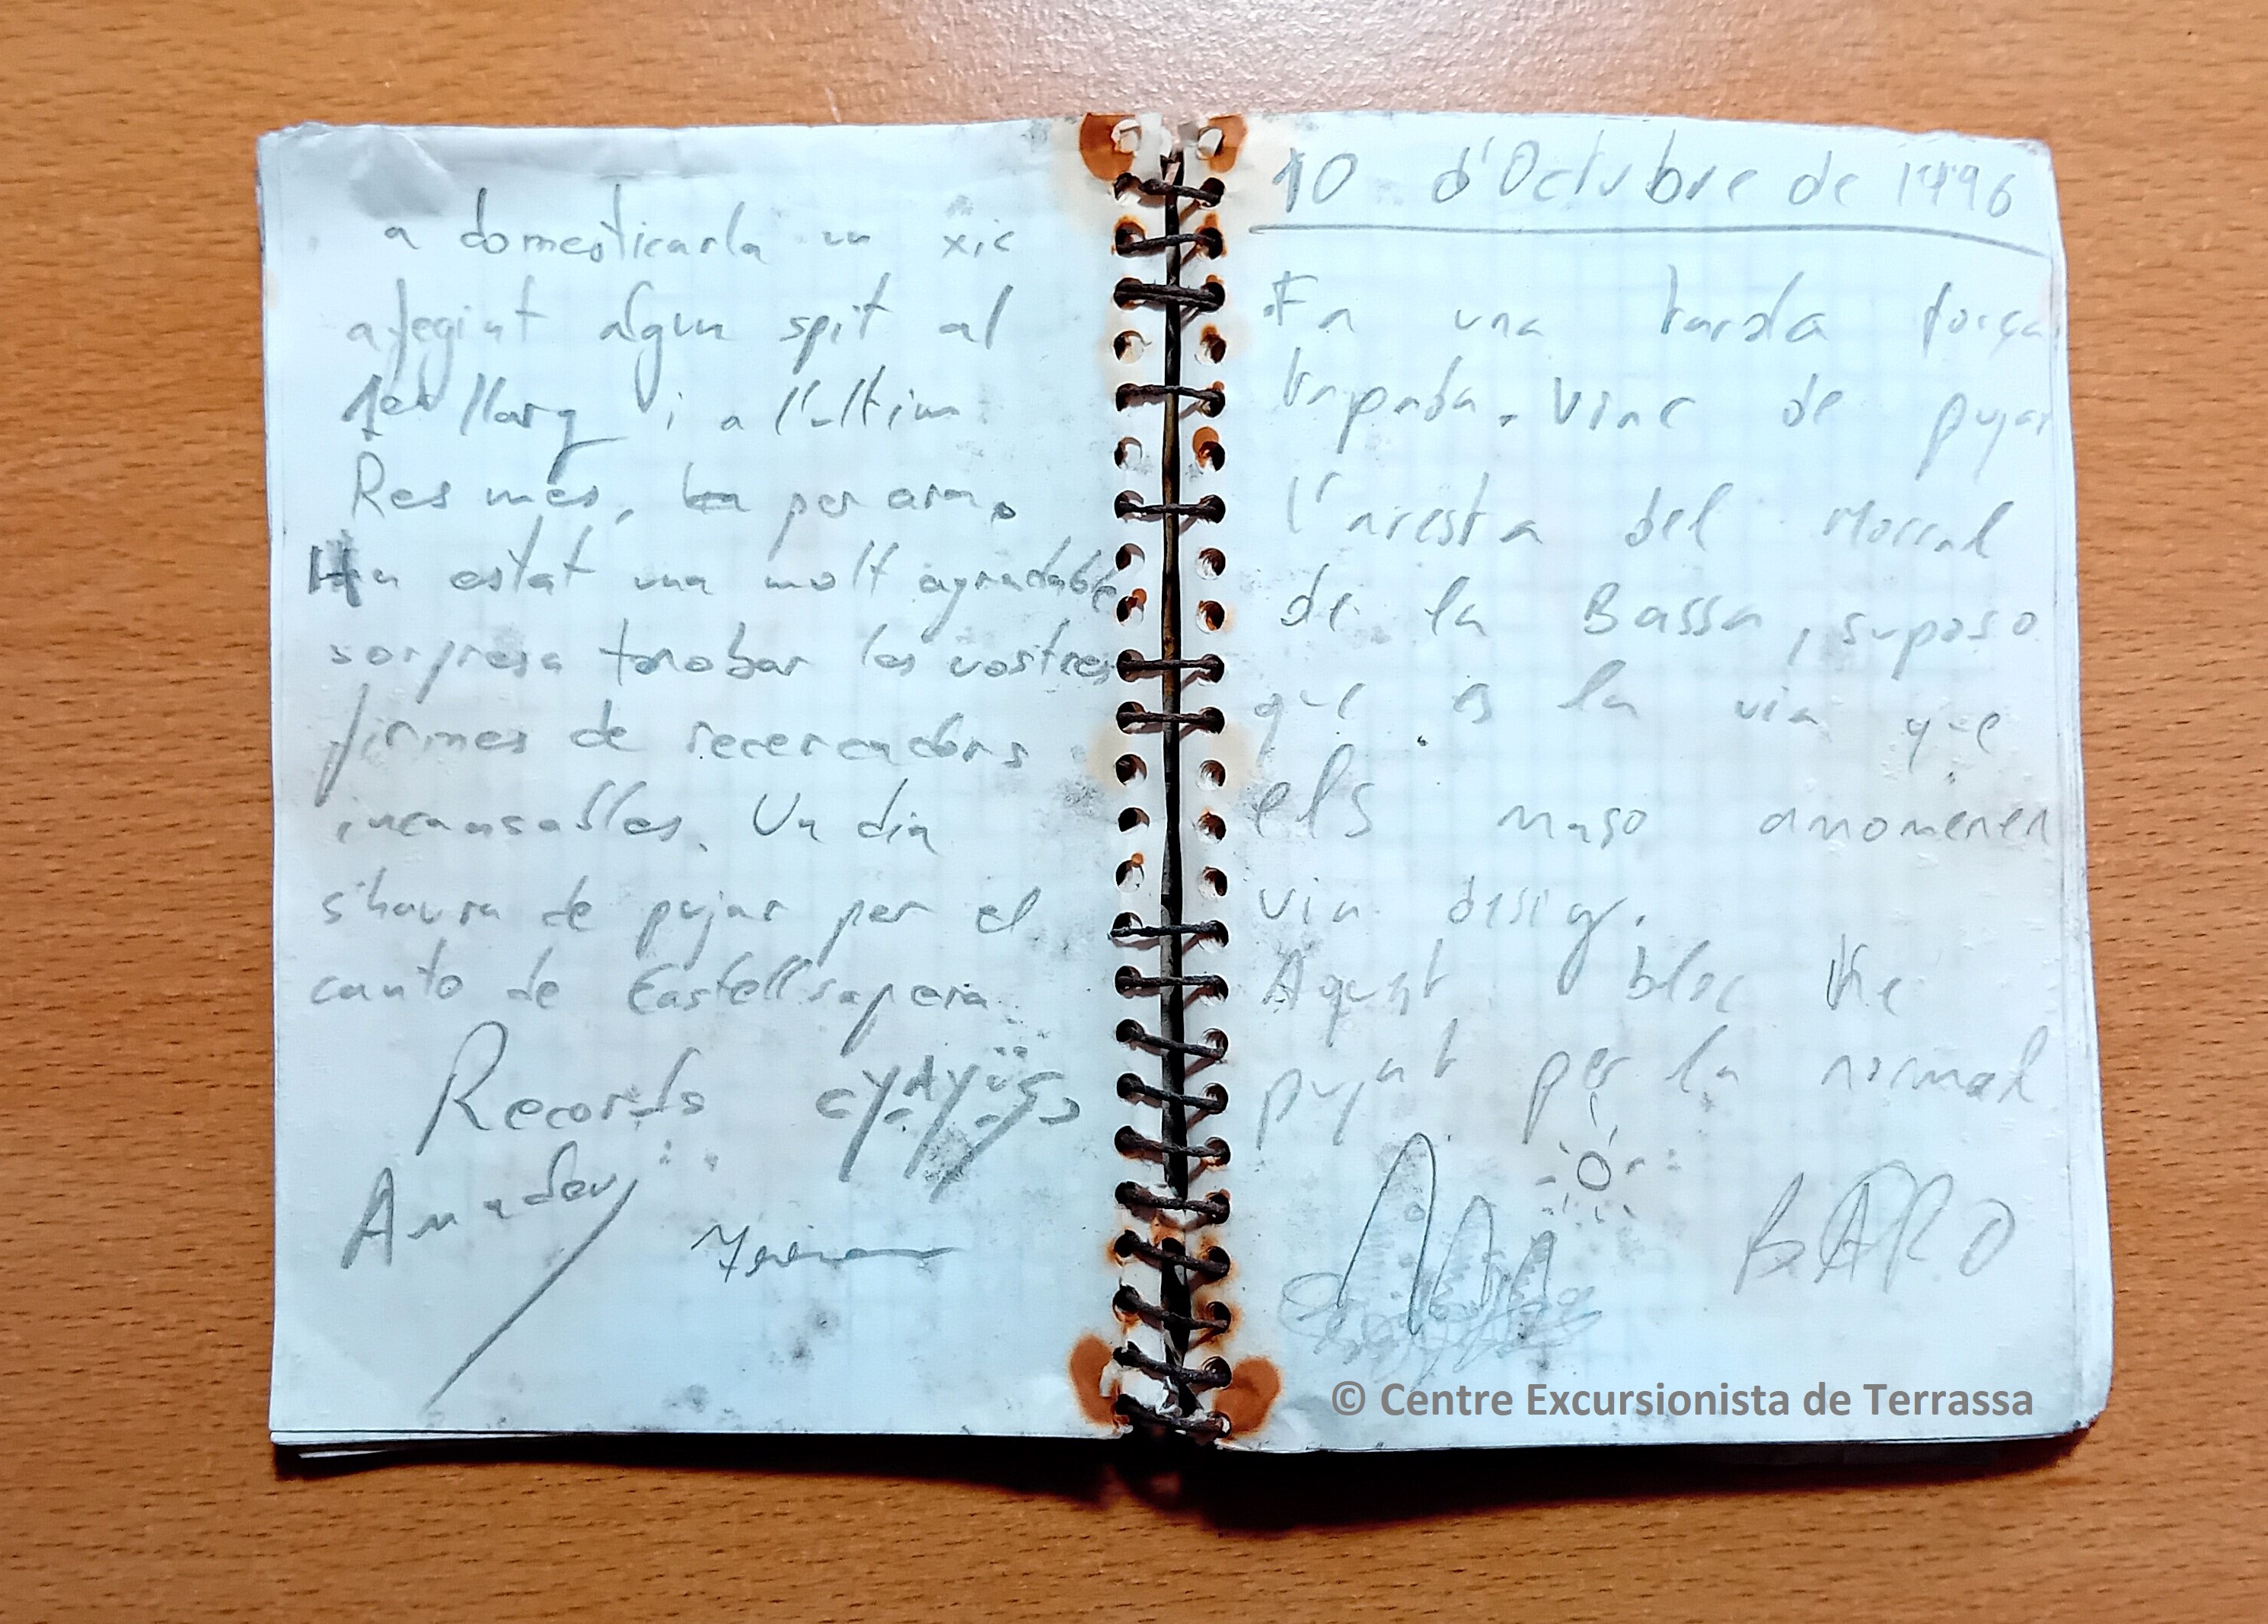 a domesticarla un xic
afegint algun spit al
1er llarg i a l'ultim
Res mes, per ara.
Ha estat una molt agradable
sorpresa trobar les vostres
firmes de recercadors
incansables. Un dia
s'haura de pujar per el
canto de Castellsapera
Records
Amadeu
10 d'Octubre de 1996
En una tarda força
tapada. Vinc de pujar
l'aresta del Morral
de la Bassa, suposo
que es la via que
els maso anomenen
via desig.
Aquest bloc l'he
pujat per la normal
BARO
© Centre Excursionista de Terrassa